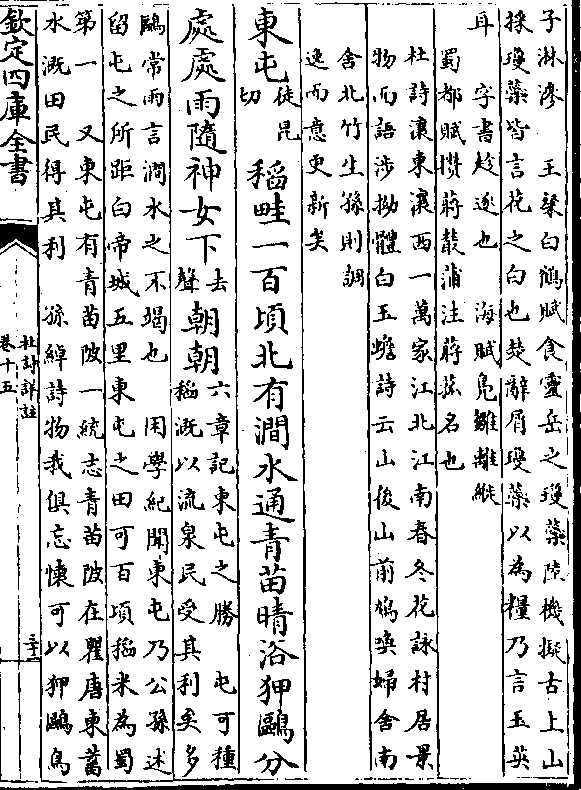 子淋滲　王粲白鶴賦食靈岳之瓊蘂陸機擬古上山
採瓊蘂皆言花之白也楚辭屑瓊蘂以為糧乃言玉英
耳　字書趁逐也　海賦鳬雛離縰
蜀都賦攢蔣叢蒲注蔣菰名也
杜詩瀼東瀼西一萬家江北江南春冬花詠村居景
物而語涉拗體白玉蟾詩云山後山前鳩喚婦舍南
舍北竹生孫則調
逸而意更新矣
東屯徒昆切稻畦一百頃北有澗水通青苗晴浴狎鷗分
處處雨隨神女下去聲朝朝六章記東屯之勝　屯可種
稻溉以流泉民受其利矣多
鷗常雨言澗水之不竭也　困學紀聞東屯乃公孫述
留屯之所距白帝城五里東屯之田可百頃稻米為蜀
第一　又東屯有青苗陂一統志青苗陂在瞿唐東蓄
水溉田民得其利　孫綽詩物我俱忘懷可以狎鷗鳥
欽定四庫全書
杜詩詳註
卷十五